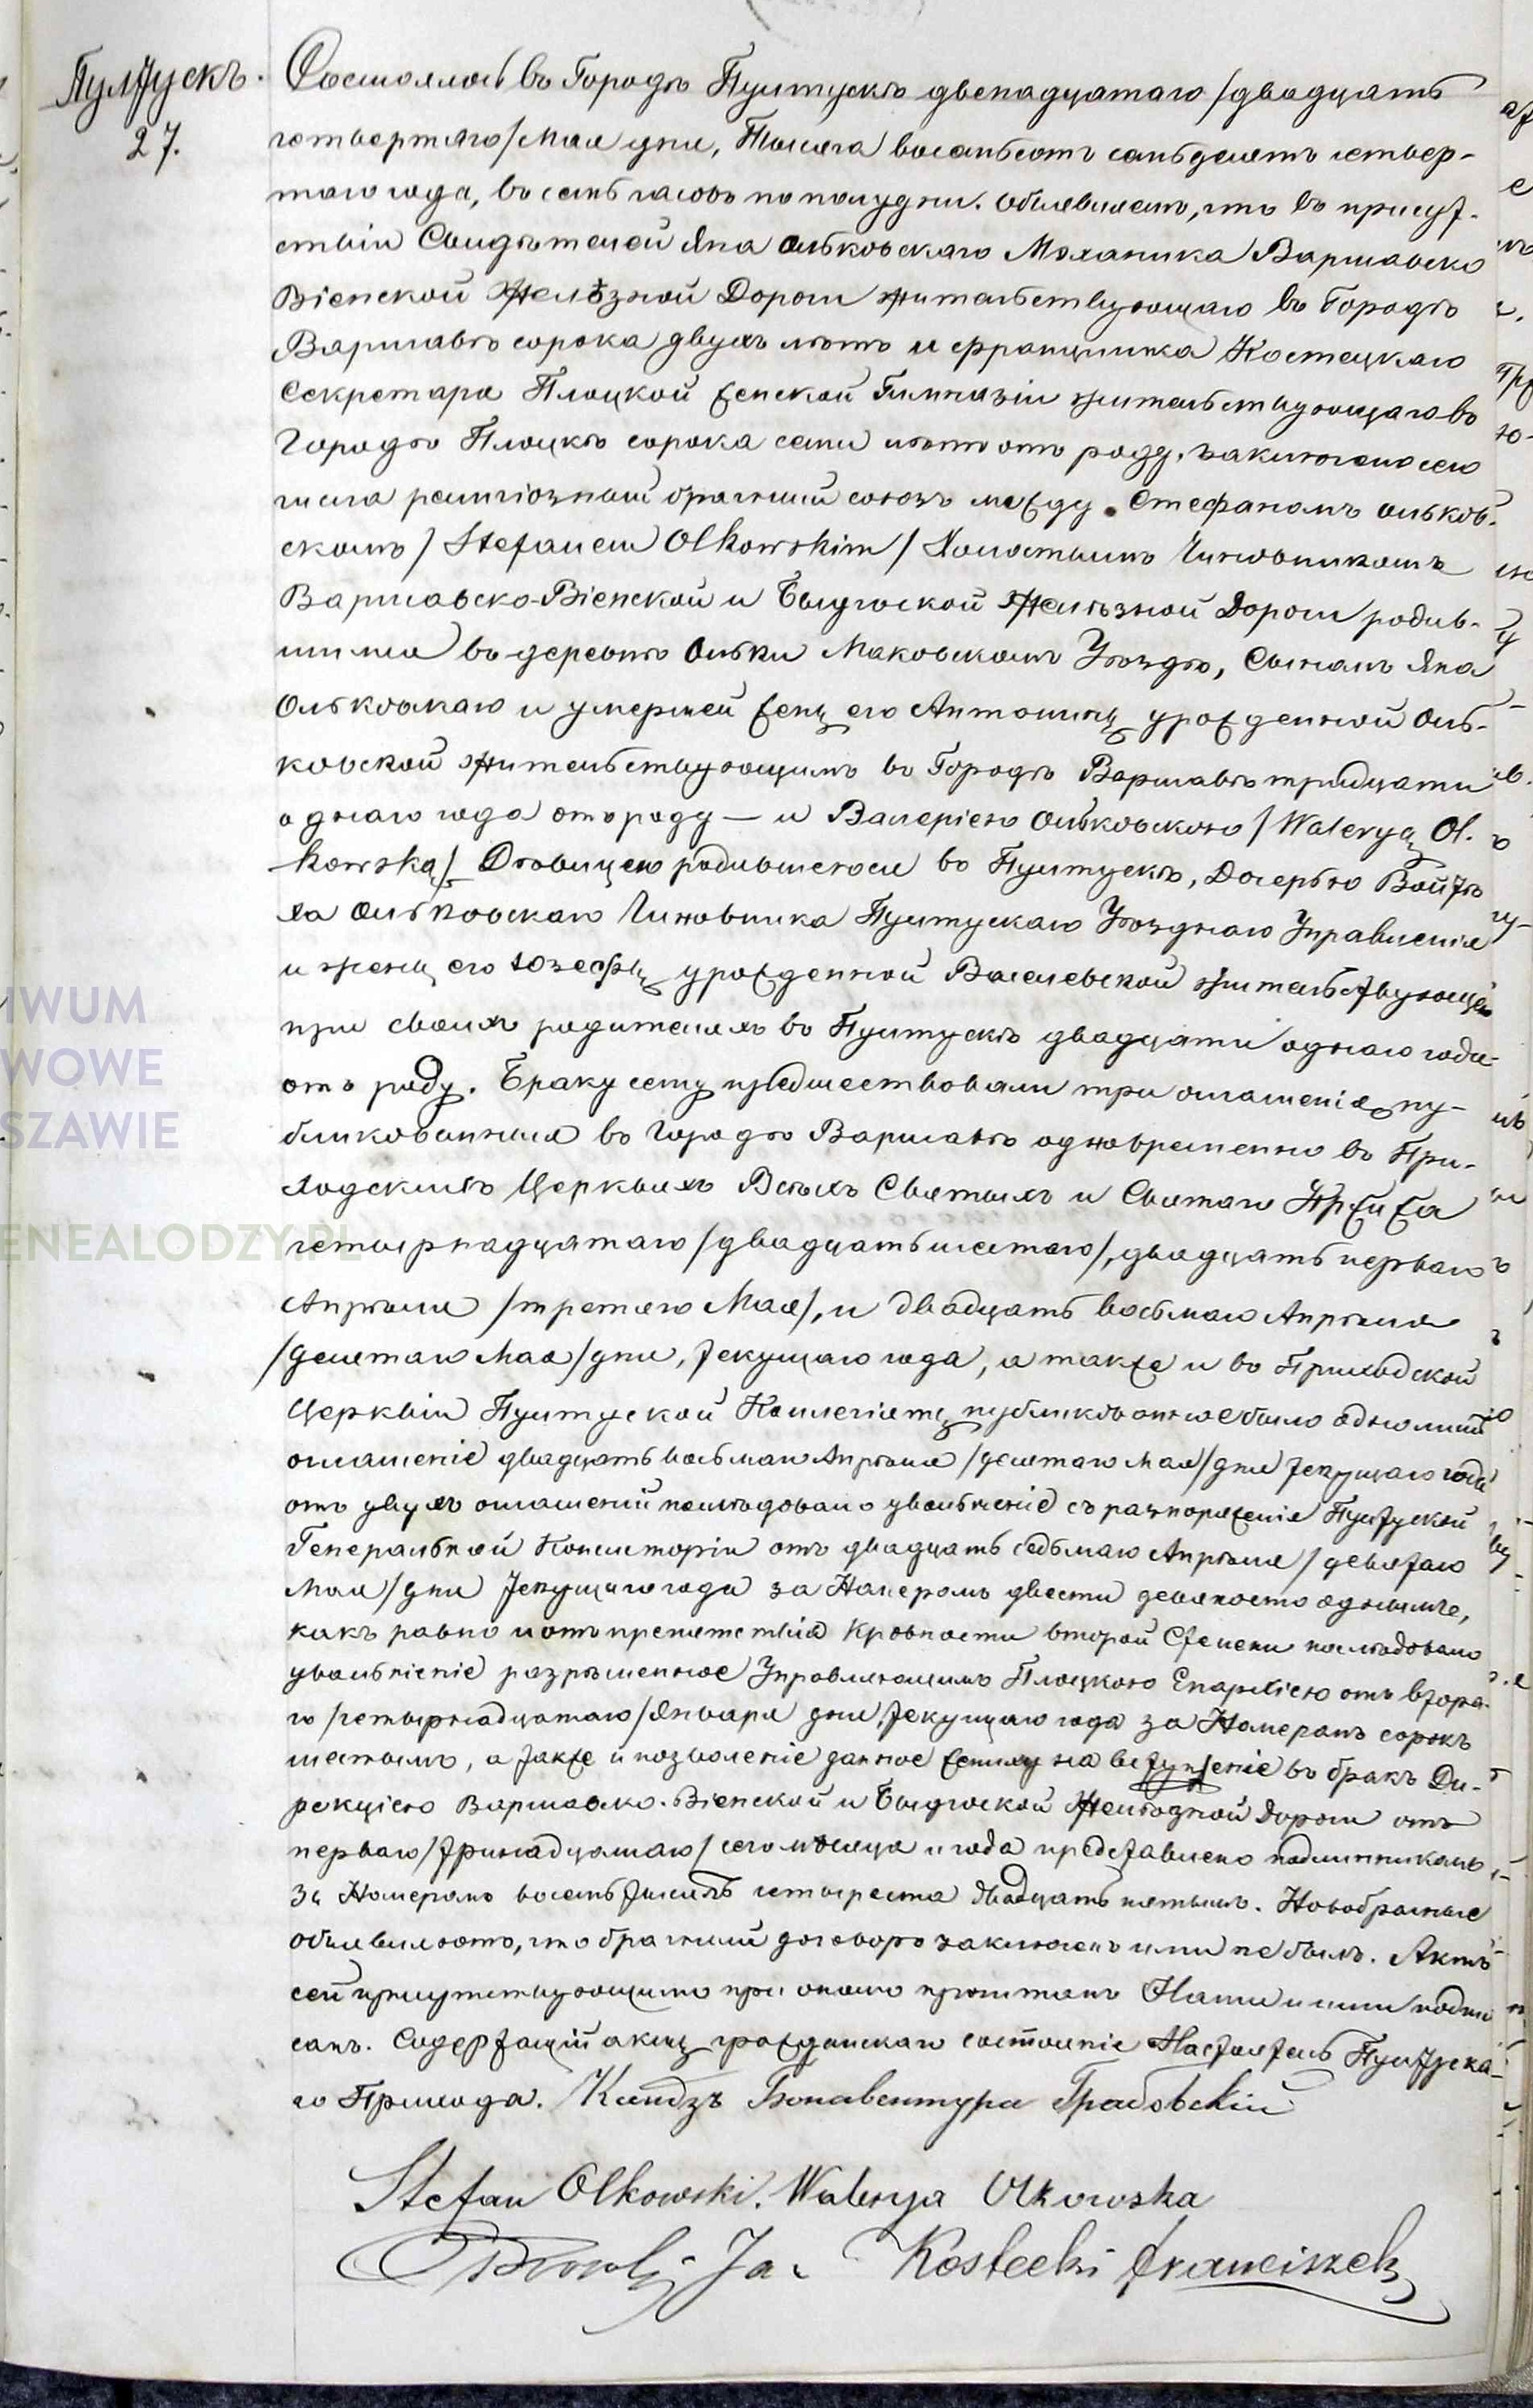 Пултускъ.
27.
Состоялось въ Городѣ Пултускѣ двенадцатаго /двадцать
четвертаго/ Мая дня, Тысяча восемьсотъ семьдесятъ четвер-
таго года, въ семь часовъ по полудни. Объявляемъ, что въ присут-
ствіи Свидѣтелей Яна Ольковскаго Механика Варшавско
Віенской Желѣзной Дороги жительствующаго въ Городѣ
Варшавѣ сорока двухъ лѣтъ и Францишка Костецкаго
Секретара Плоцкой Женской Гимназіи жительствующаго въ
Городѣ Плоцкѣ сорока семи лѣтъ отъ роду, заключено сего
числа религіозный брачный союзъ между Стефаномъ Ольков-
скомъ / Stefanem Olkowskim / Холостымъ Чиновникомъ
Варшавско-Віенской и Быдгоской Желѣзной Дороги родив-
шимся въ деревнѣ Ольки Маковскомъ Уѣздѣ, Сыномъ Яна
Ольковскаго и умершей жены его Антонины урожденной Оль-
ковской жительствующимъ въ Городѣ Варшавѣ тридцати
однаго года отъ роду — и Валеріею Ольковскою / Waleryą Ol-
kowską / Дѣвицею родившеюся въ Пултускѣ, Дочерью Войтѣ
ха Ольковскаго Чиновника Пултускаго Уѣзднаго Управленія
и жены его Юзефы урожденной Василевской жительствующею
при своихъ родителяхъ въ Пултускѣ двадцати однаго года
отъ роду. Браку сему предшествовали три оглашенія, пу-
бликованныя въ Городѣ Варшавѣ одновременно въ При-
ходскихъ Церквахъ Всѣхъ Святыхъ и Святаго Креста
четырнадцатаго /двадцать шестаго/, двадцать перваго
Апрѣля /третяго Мая/, и двадцать восьмаго Апрѣля
/десятаго Мая/ дня, текущаго года, а также и въ Приходской
Церкви Пултуской Коллегіаты публикованное было одно лишь
оглашеніе двадцать восьмаго Апрѣля /десятаго Мая/ дня текущаго года
отъ двухъ оглашеній послѣдовало увольненіе съ разпоряженія Пултуской
Генеральной Консисторіи отъ двадцать седьмаго Апрѣля /девятаго
Мая/ дня текущаго года за Номеромъ двести девяносто однымъ,
какъ равно и отъ препятствія Кровности второй Степени послѣдовало
увольненіе разрѣшенное Управляющимъ Плоцкою Епархіею отъ втора-
го /четырнадцатаго/ Января дня, текущаго года за Номеромъ сорокъ
шестымъ, а также и позволеніе данное жениху на вступленіе въ бракъ Ди-
рекціею Варшавско-Віенской и Быдгоской Желѣзной Дороги отъ
перваго /тринадцатаго/ сего мѣсяца и года представлено подлинникомъ
За Номеромъ восемь тысячъ четыреста двадцать пятымъ. Новобрачные
объявляютъ, что брачный договоръ заключенъ ими не былъ. Актъ
сей присутствующимъ при ономъ прочитанъ Нами и ими подпи
санъ. Содержащій акты гражданскаго состоянія Настоятель Пултуска-
го Прихода. Ксендзъ Бонавентура Грабовскій
Stefan Olkowski. Walerya Olkowska
Olkowski Ja. Kostecki Franciszek
IWUM
WOWE
SZAWIE
ENEALODZY.PL